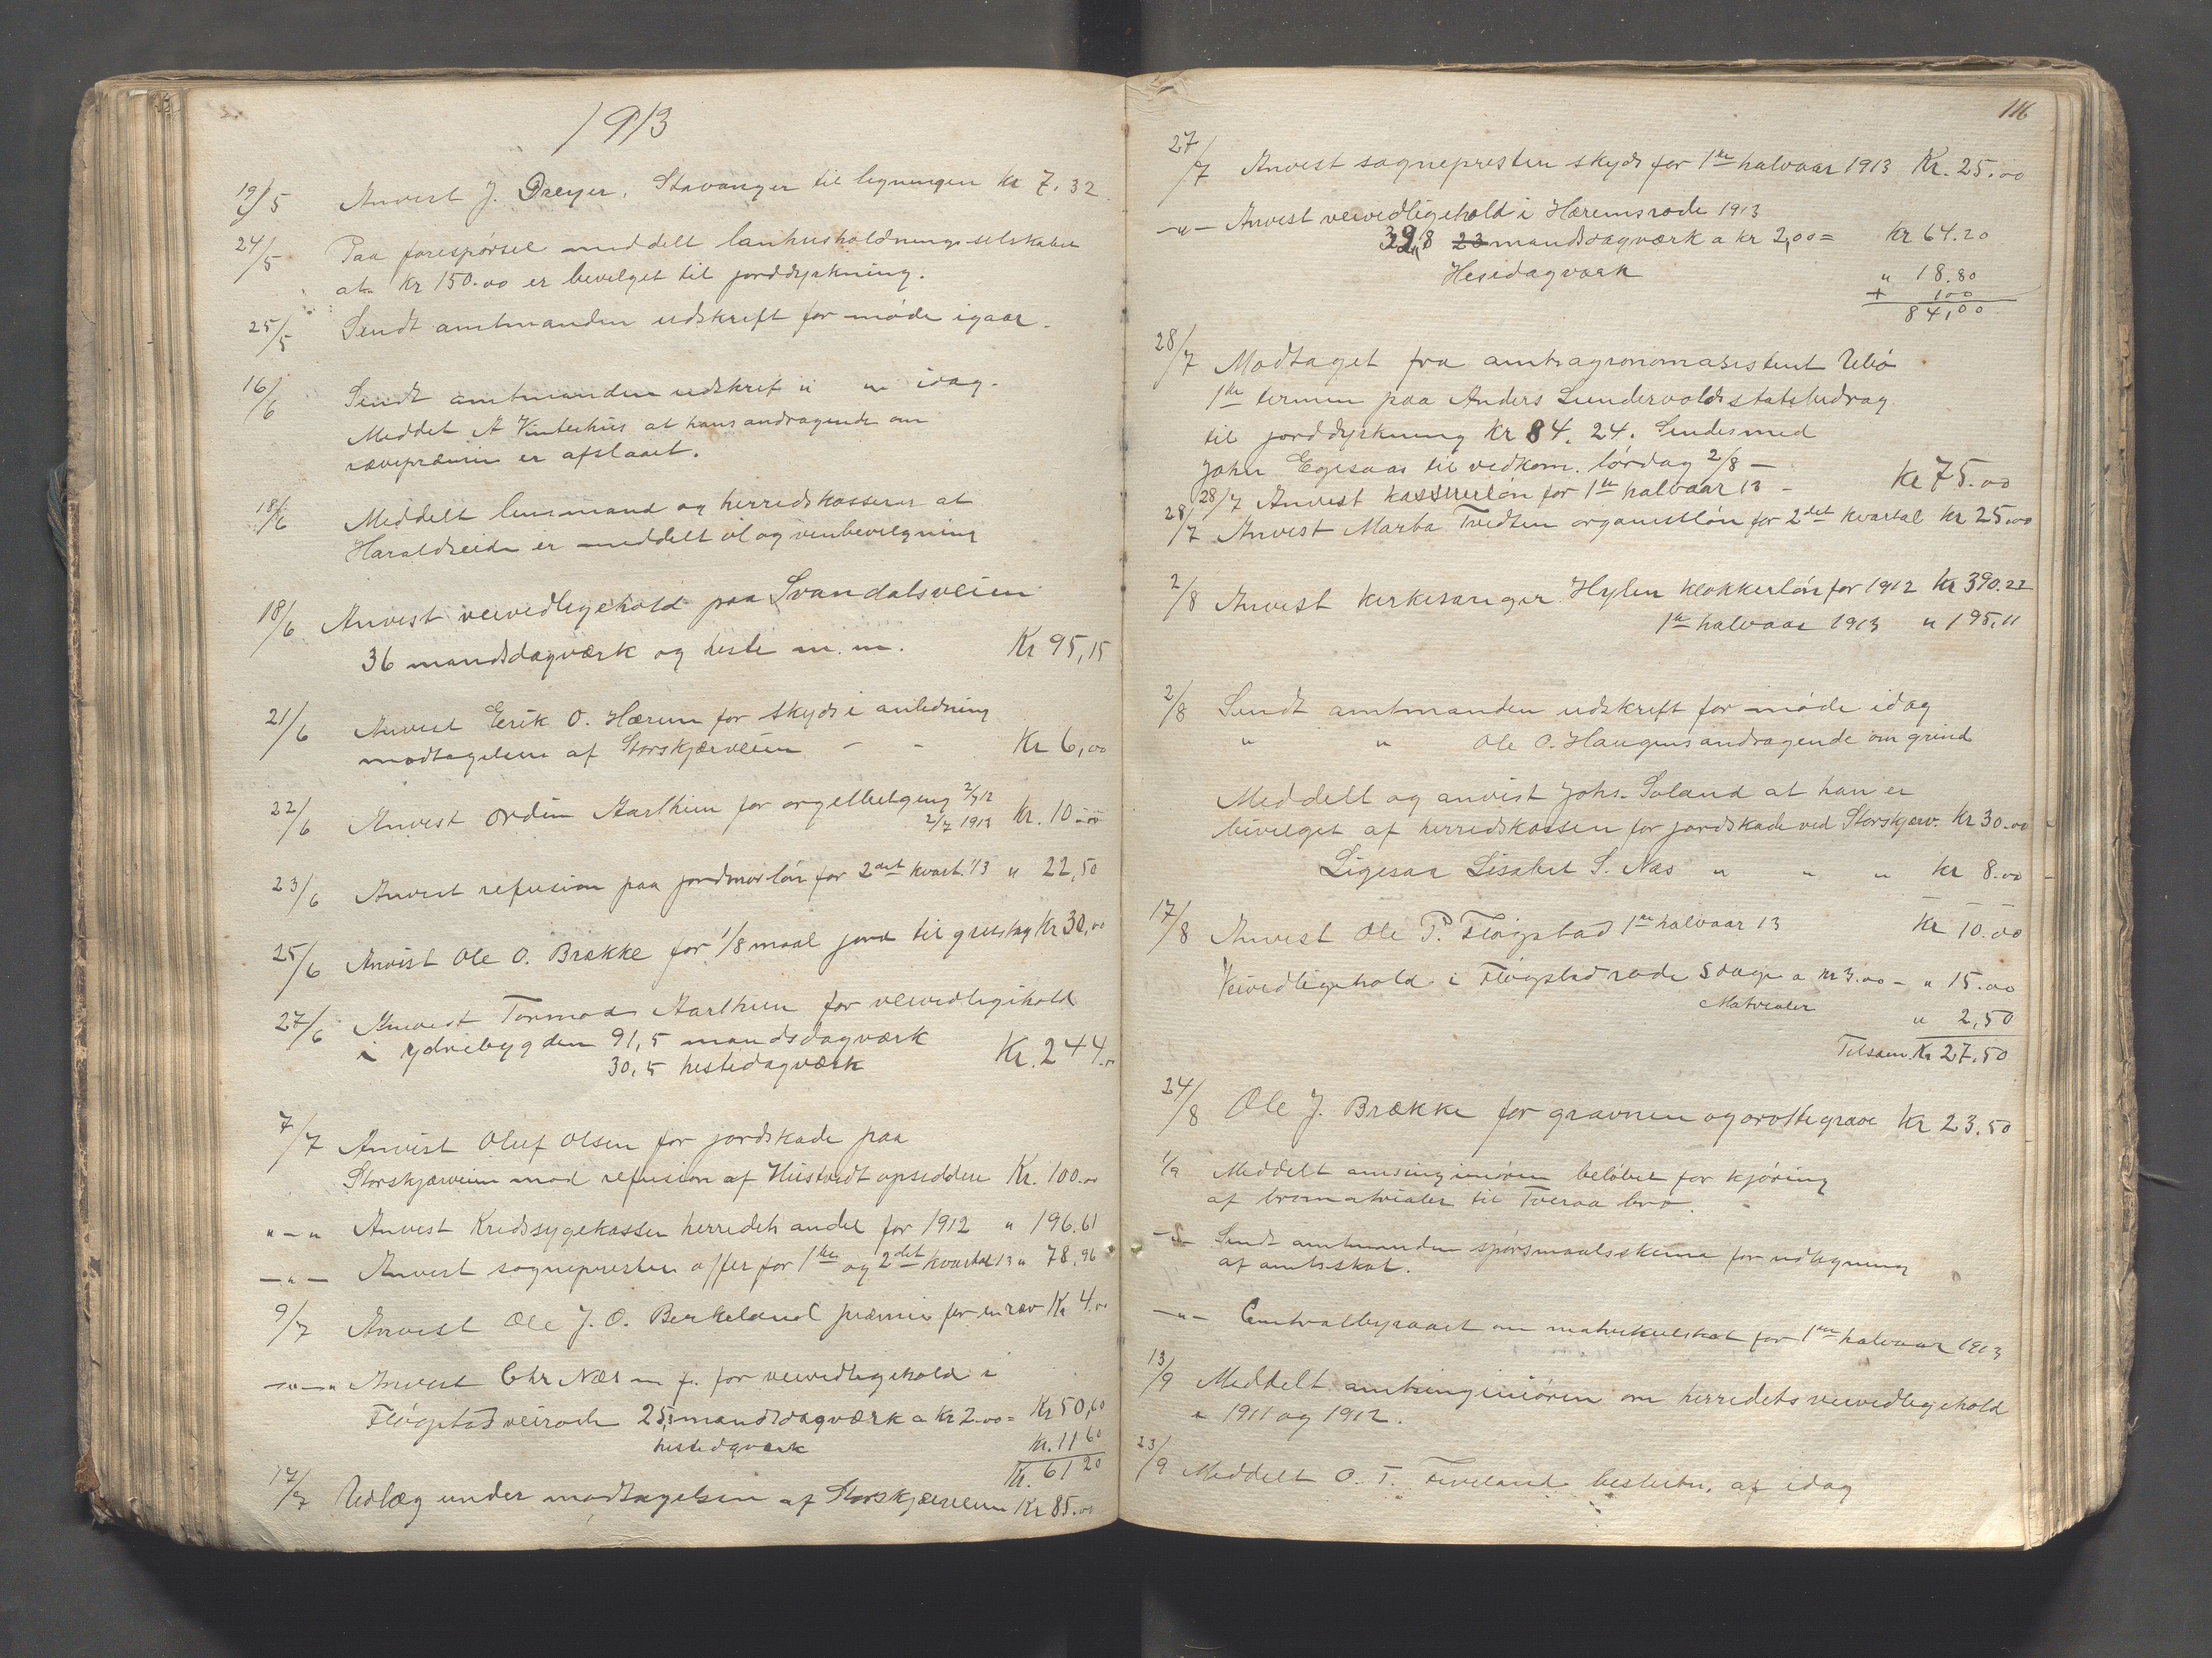 1913
19/5 Anvist J. Dreyer, Stavanger til ligningen Kr 7.32
24/5 Paa forespørsel meddelt lanhusholdningsselskabet
at Kr 150.00 er bevilget til jorddyrkning.
25/5 Sendt amtmanden udskrift for møde igaar.
16/6 Sendt amtmanden udskrift " " idag.
Meddelt A Vinterhus at hans andragende om
rævepræmie er afslaaet.
18/6 Meddelt lensmand og herredskasserer at
Haraldseide er meddelt øl og vinbevilgning
18/6 Anvist veivedligehold paa Svandalsveien
36 mandsdagværk og heste m.m. Kr 95,15
21/6 Anvist Eerik O. Hærum for skyds i anledning
modtagelsen af Storskjærveien - - Kr 6,00
22/6 Anvist ordfør Aarthun for orgelbelgning 2/7 12
2/7 1913 Kr. 10.00
23/6 Anvist refusion paa jordmorløn for 2det kvart. 13 " 22,50
25/6 Anvist Ole O. Brække for 1/8 maal jord til grustag Kr 30,00
27/6 Anvist Tormod Aarthun for veivedligehold
i ydrebygden 91,5 mandsdagværk
30,5 hestedagværk Kr. 244.00
7/7 Anvist Oluf Olsen for jordskade paa
Storskjærveien mod refusion af Hustvedt opsiddere Kr. 100.00
"-" Anvist Kredssygekassen herredets andel for 1912 " 196.61
-"- Anvist sognepresten offer for 1ste og 2det kvartal 13 " 78,96
9/7 Anvist Ole J. O. Berkeland præmie for en ræv Kr 4.00
-"-" Anvist Chr Næs m fl. for veivedligehold i
Fløgstadveirode 25,3 mandsdagværk a Kr 2.00 = Kr 50,60
hestedagværk Kr. 11 60
Kr. 61 20
17/7 Udlæg under modtagelsen af Storskjærveien Kr 85.00
116
27/7 Anvist sognepresten skyds for 1ste halvaar 1913 Kr. 25.00
-"- Anvist veivedligehold i Hærumsrode 1913
32,8 23 mandsdagværk a kr 2,00 = Kr 64.20
Hesedagværk " 18.80
+ 100
84,00
28/7 Modtaget fra amtsagronomasistent Ubø
1ste termin paa Anders Sundervolds statsbidrag
til jorddyrkning Kr 84.24. Sendes med
John Egesaas til vedkom. lørdag 2/8 -
28/7 Anvist kassererløn for 1ste halvaar 13 - Kr 75.00
28/7 Anvist Marta Tvedten organistløn for 2det kvartal Kr 25.00
2/8 Anvist kirkesanger Hylen klokkerløn for 1912 Kr 390.22
1ste halvaar 1913 " 195,11
2/8 Sendt amtmanden udskrift for møde idag
" " Ole O. Haugens andragende om grind
Meddelt og anvist Johs. Soland at han er
bevilget af herredskassen for jordskade ved Storskjærv. Kr 30.00
Ligesaa Lisabet S. Næs " " " Kr 8.00
17/8 Anvist Ole P. Fløgstad 1ste halvaar 13 Kr 10.00
Veivedligehold i Fløgstad rode 5 dage a Kr 3.00 - " 15.00
Matrialer " 2,50
Tilsam. Kr 27.50
24/8 Ole J. Brække for gravnen og orvstegrave Kr 23.50
1/9 Meddelt amtsingeniøren beløbet for kjøring
af bromatrialer til Tveraa bro.
-"- Sendt amtmanden spørsmaalsskema for udligning
af amtsskat.
-"- Centralbyraaet om matrikulskat for 1ste halvaar 1913
13/9 Meddelt amtsingeniøren om herredets veivedligehold
i 1911 og 1912.
23/9 Meddelt O. T. Tveland beslutn. af idag